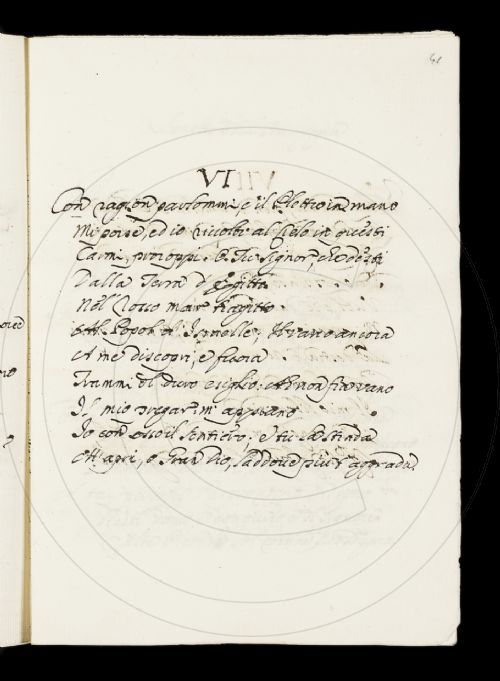 41
VI
Con ragion parlommi, e il Plettro in mano
Mi porse, ed io rivolto al Cielo in questi
Carmi, proroppi: O Tu Signor, che desti
Dalla Terra d'Egitto
Nel Rosso mar tragitto
Al Popol d'Ismelle, il varco ancora
A me discopri, e fuora
Trammi del duro esiglio: Ah non fia vano
Il mio pregar: m'appiano
Io con esso il sentiero; e tu la strada
M'apri, o Gran Dio, laddove più t'aggrada